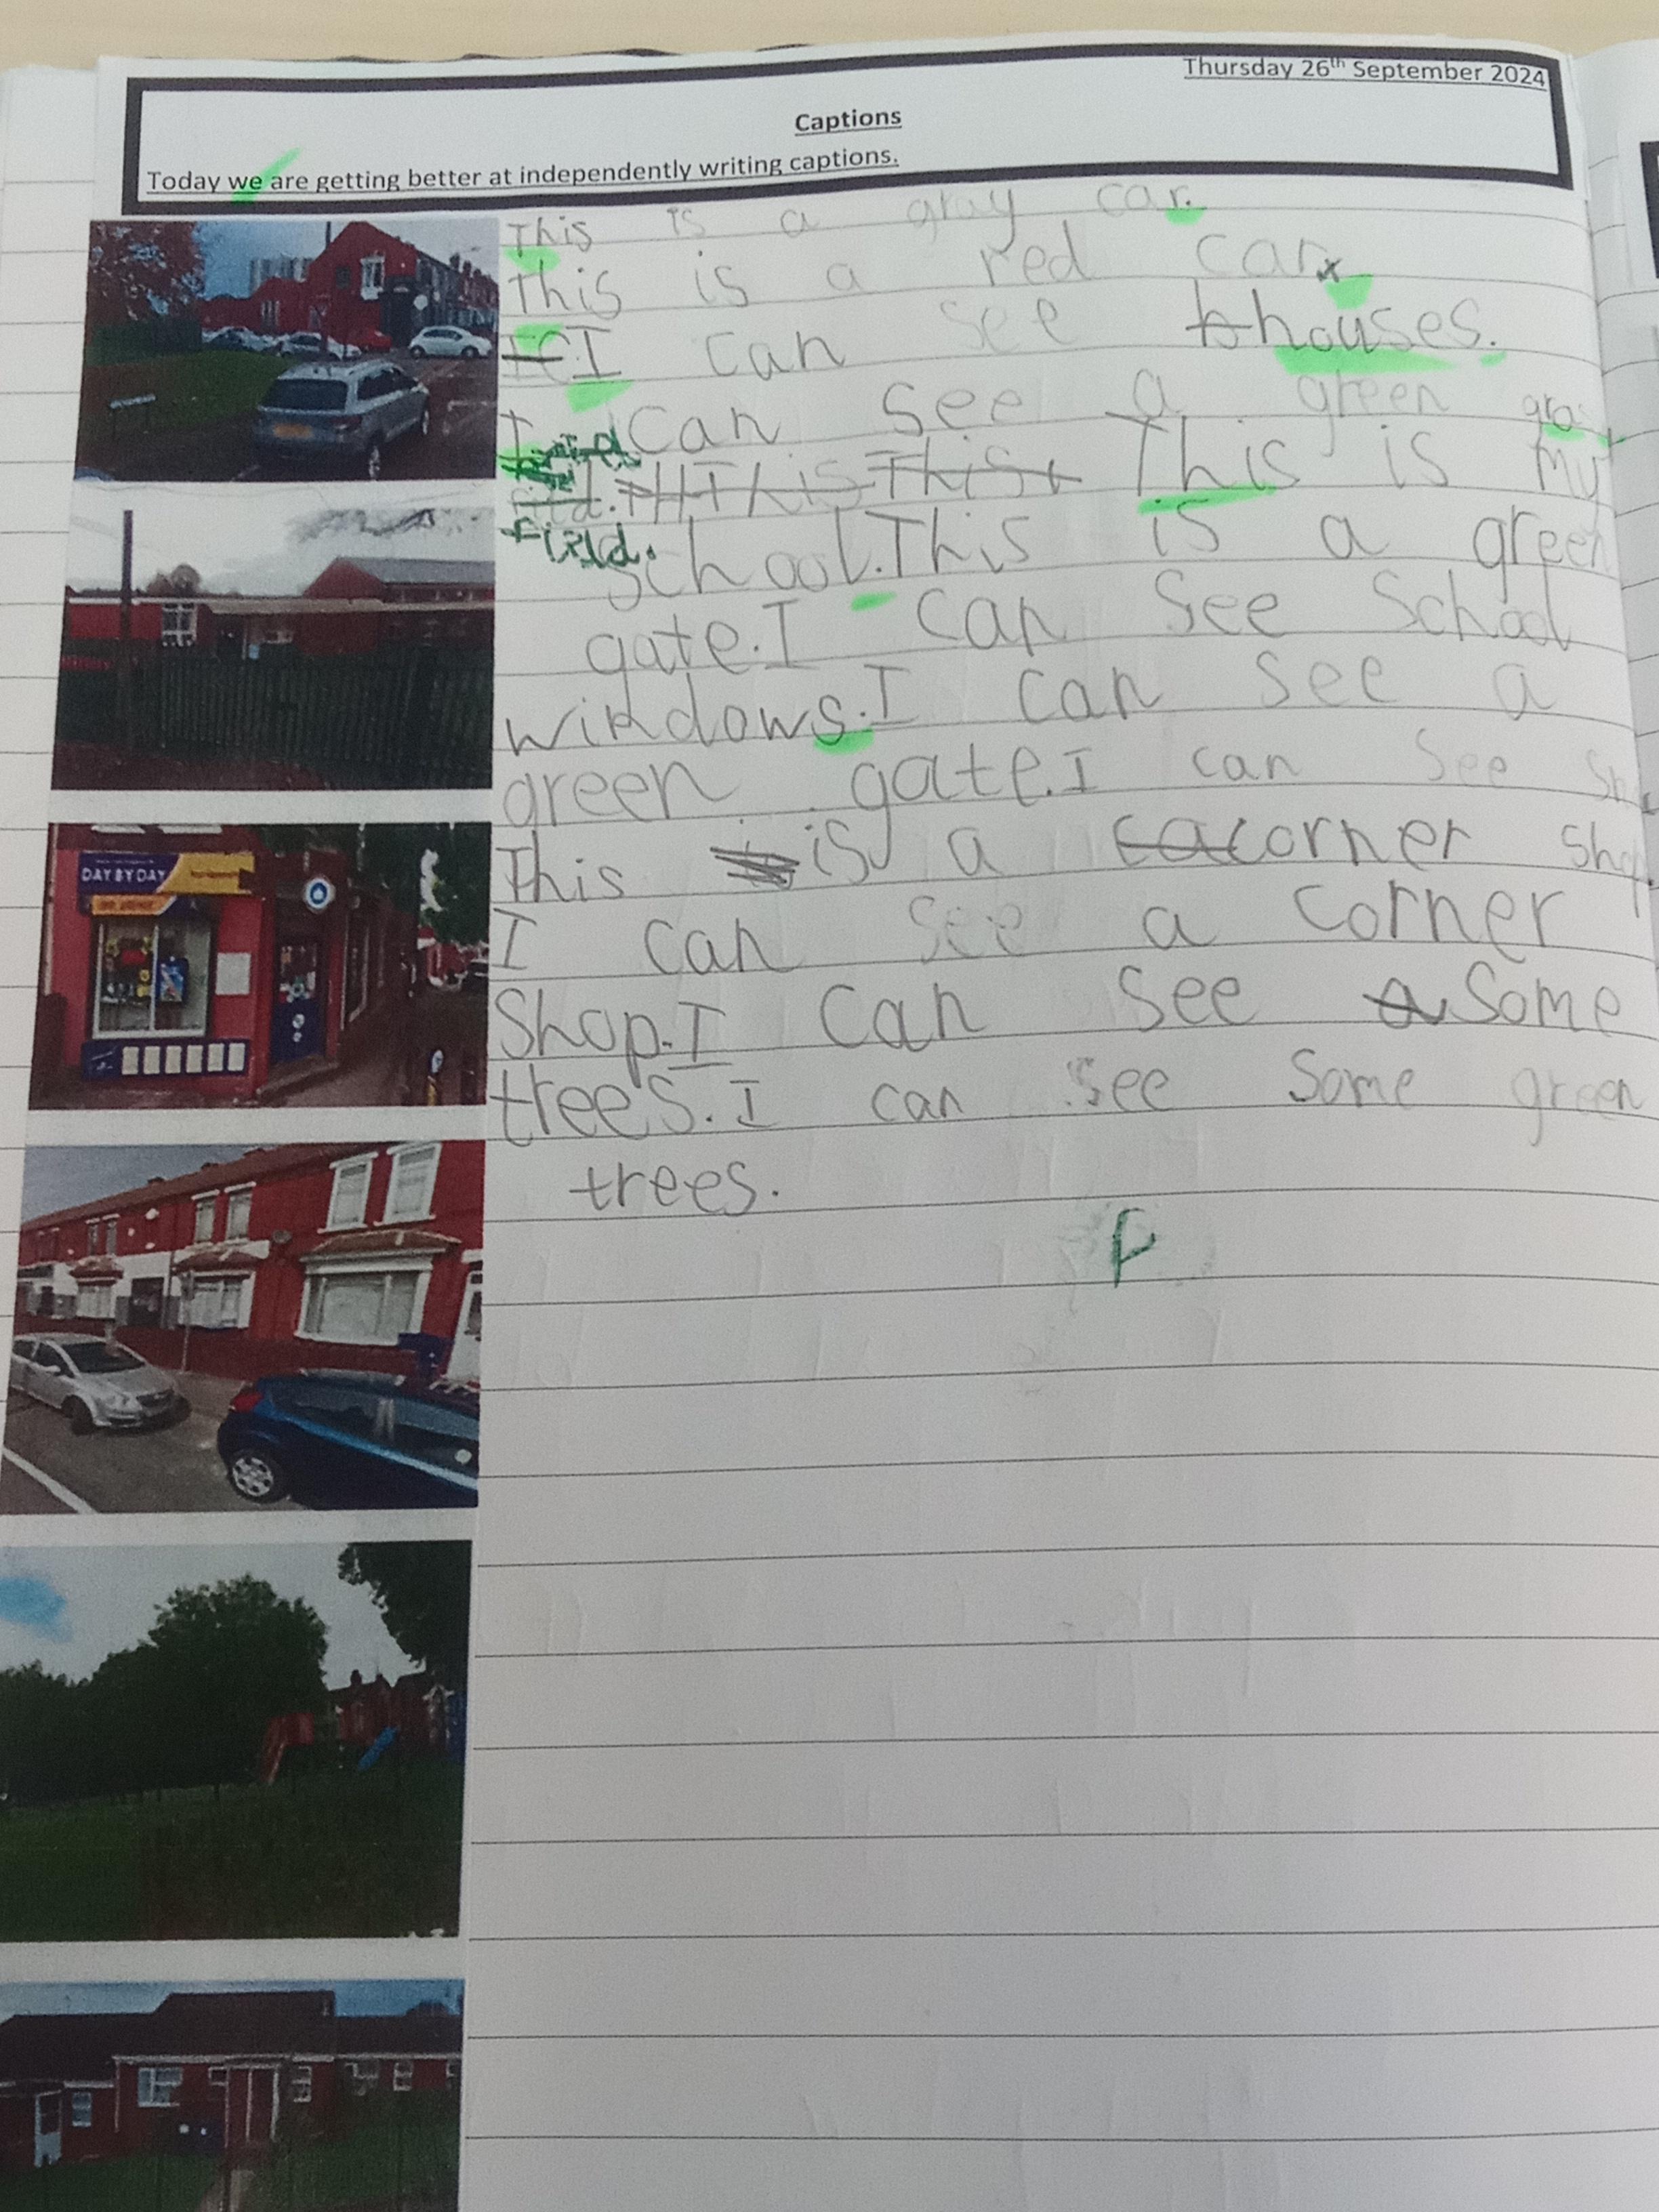 Thursday 26th September 2024
Captions
Today we are getting better at independently writing captions.
This is a gray car.
This is a red car
I can see houses.
I can see a green
This is my
field.
school. This is a green
gate. I can see School
windows. I can see a
green gate. I can see
This is a corner shop
I can see a corner
Shop. I can see some
trees. I can see some green
trees.
DAY BY DAY